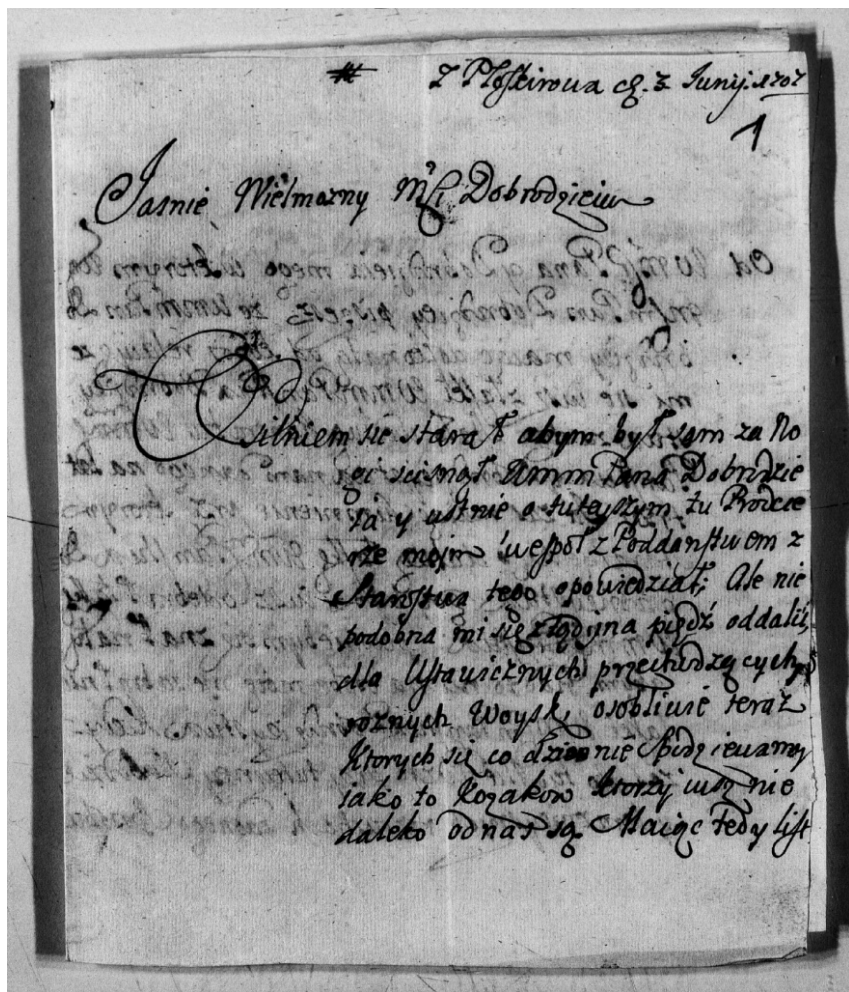 Z Płoskirowa d. 3 Junij. 1707
1
Jasnie Wielmozny Mci Dobrodzieiu
Usilniem się starał abym był sam za No
gi scisnął Ummm Pana Dobrodzie
ia y ustnie o tuteyszym tu Procede
rze mojm wespoł z Poddanstwem z
Starostwa tego opowiedział; Ale nie
podobna mi się ztąd y na piędź oddalić,
dla Ustawicznych przechodzących
roznych Woysk, osobliwie teraz
Ktorych się co dzien nie spodziewamy
jako to Kozakow ktorzy iusz nie
daleko od nas są. Maiąc tedy list